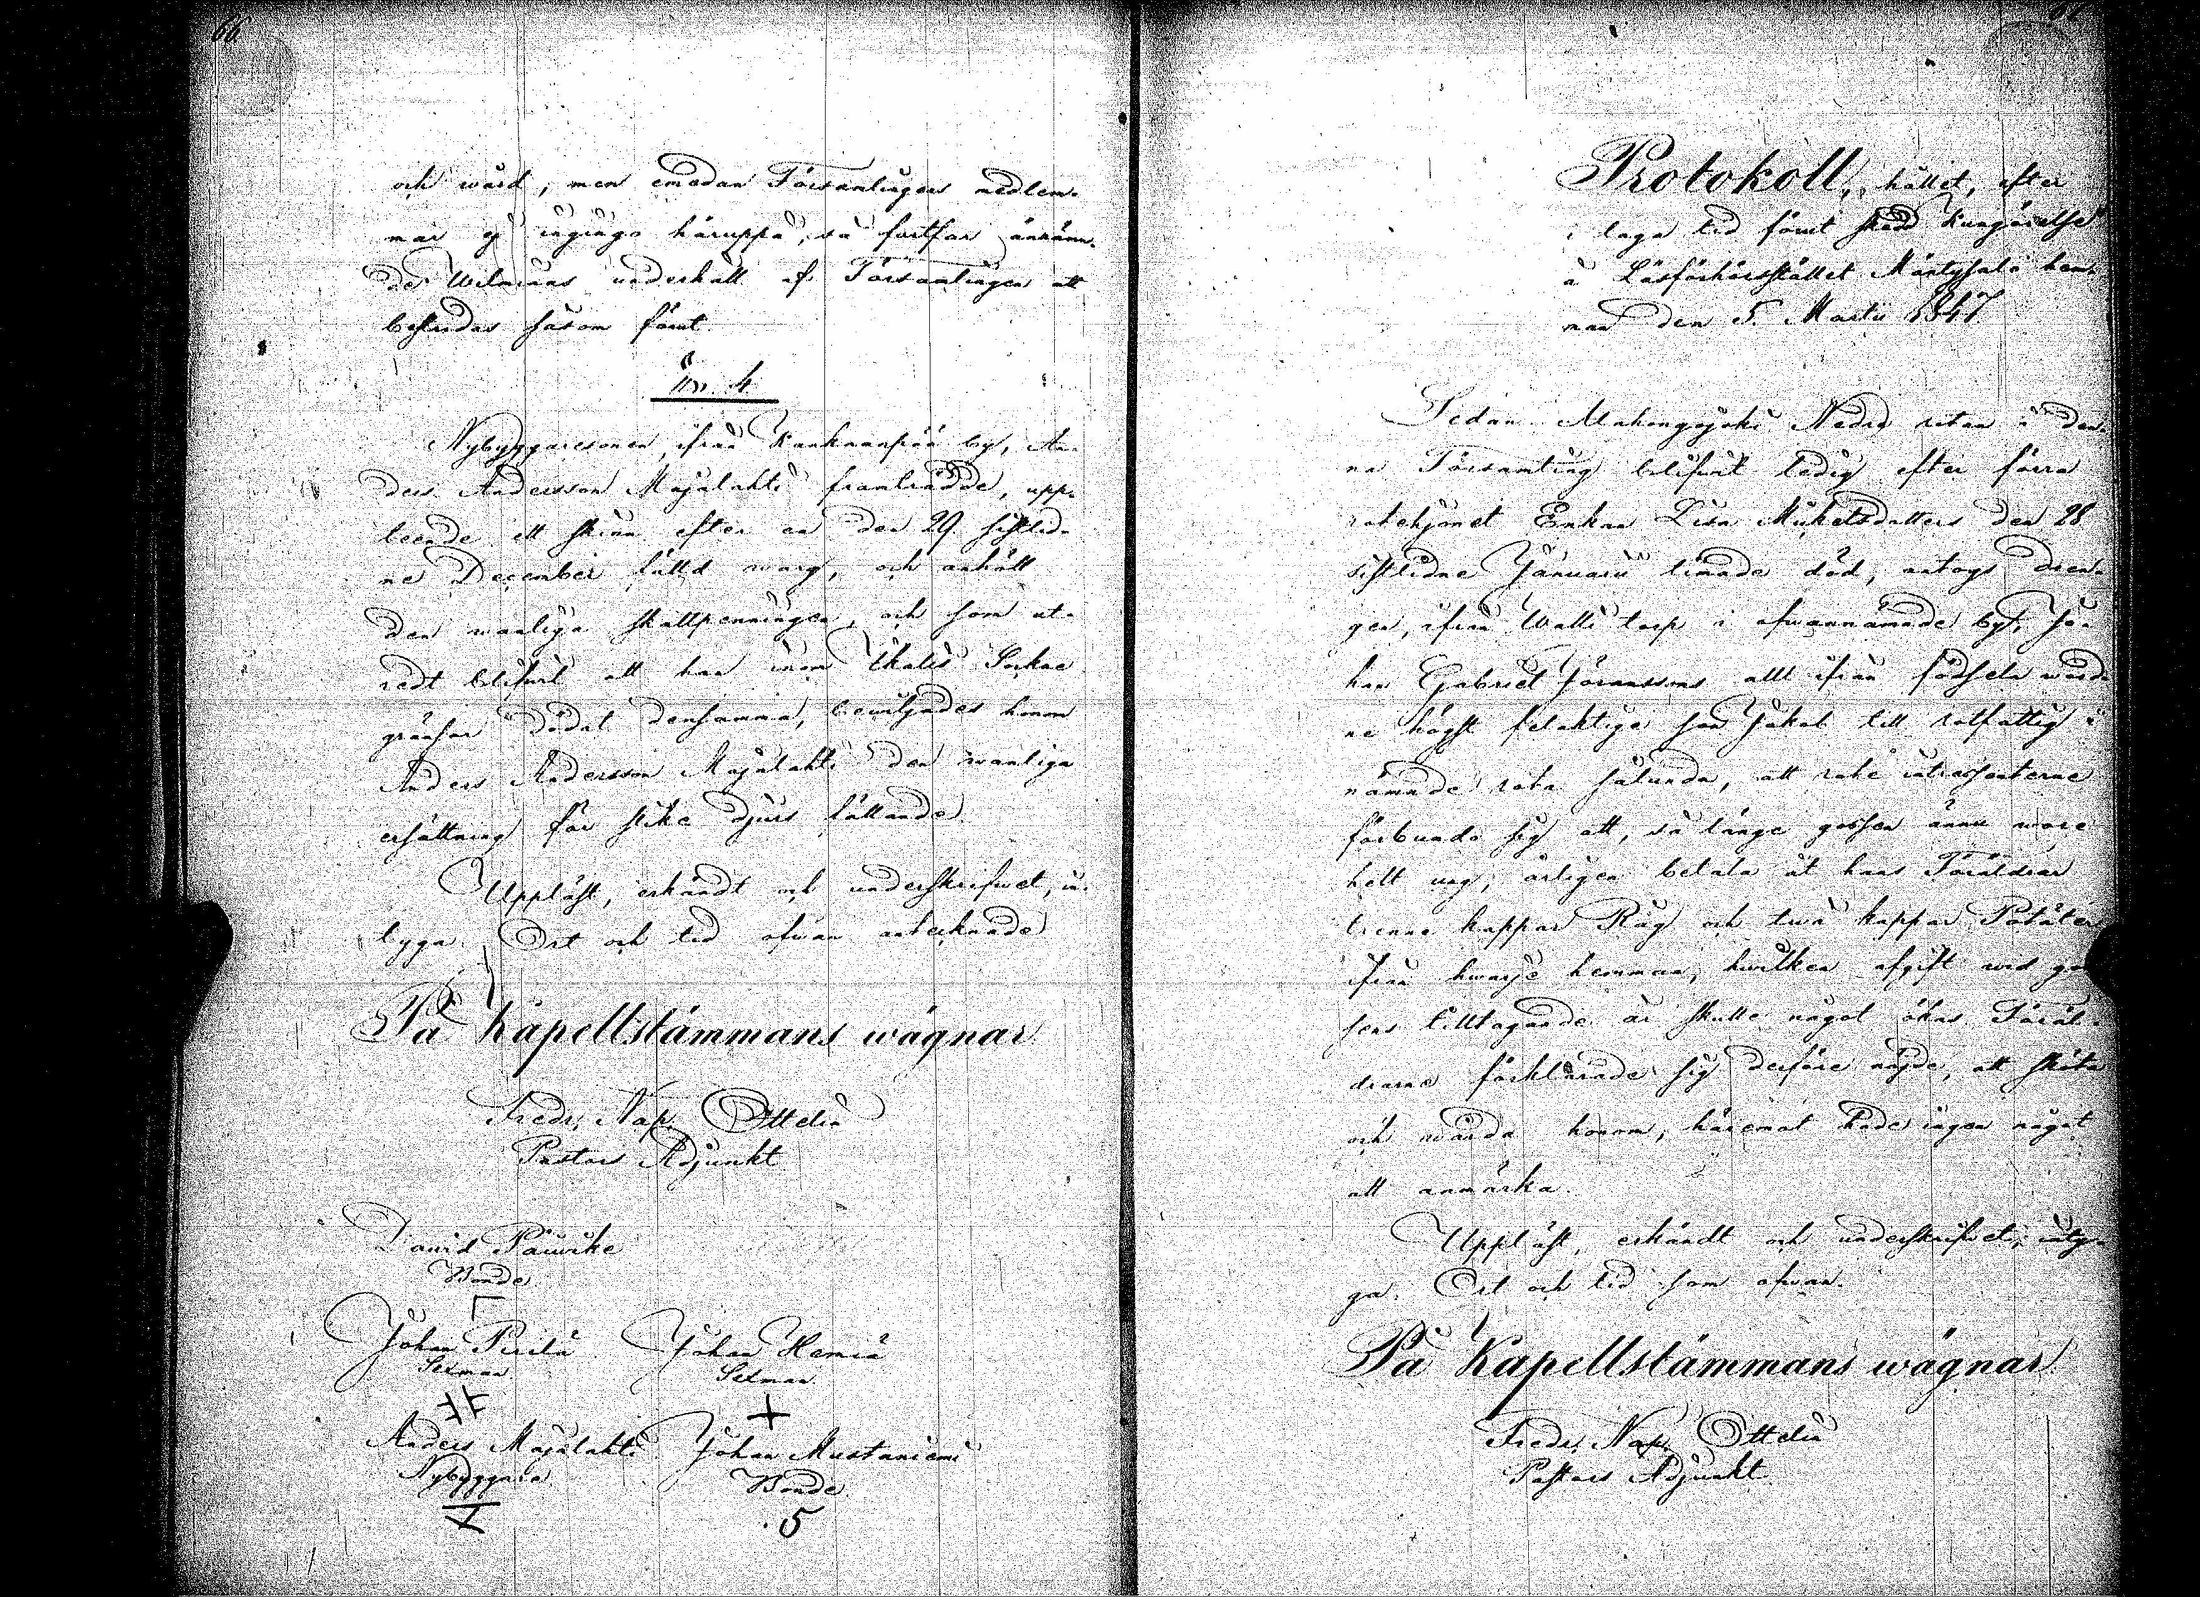 66
och wård, men emedan Församlingens medlem-
mar ej ingingo häruppå, så fortfar ännämn-
de Wilminas underhåll af Församlingen att
bestridas såsom förut.
§m. 4.
Nybyggaresonen, ifrån Kankaanpää by, An-
ders Andersson Majalahti framträdde, upp-
teende ett skinn efter en den 29. sistlid-
ne December fälld warg, och anhöll
den wanliga skallpenningen, och som ut-
redt blifwit att han inom Ikalis Sockne
gränsor dödat densamma, bewiljades honom
Anders Andersson Majalahti den wanliga
ersättning för slike djurs fällande.
Uppläst, erkändt och underskrifwet, in-
tyga. Ort och tid ofwan antecknade
På Kapellstämmans wägnar
Fredr. Nap. Ottelin
Pastors Adjunkt
David Päiwike
Bonde
Johan Pirilä Johan Hemiä
Sexman Sexman
Anders Majalahti Johan Mustaniemi
Nybyggare Bonde
67
Protokoll, hållet, efter
i laga tid förut skedd kungörelse
å Läsförhörsstället Mäntysalo hem-
man den 5. Martii 1847.
Sedan Mahongijoki Nedre rotan i den-
na Församling blifwit ledig efter förra
rotehjonet Enkan Lisa Mickelsdotters den 28
sistlidne Januarii timade död, antogs dren-
gen, ifrån Walli torp i ofwannämnde by, Jo-
han Gabriel Jöranssons allt ifrån födseln ward-
ne högst felaktige son Jakob till rotfattig i
nämnde rota sålunda, att rote intressenterne
förbundo sig att, så länge gossen ännu wore
helt ung, årligen betala åt hans Föräldrar
trenne kappar Råg och twå kappar Potäter
ifrån hwarje hemman, hwilken afgift wid gos
sens tilltagande år skulle något ökas. Föräl-
drarne förklarade sig derföre nöjde, att sköta
och wårda honom, häremot hade ingen något
att anmärka.
Uppläst, erkändt och underskrifwet, inty-
ga. Ort och tid som ofwan.
På Kapellstämmans wägnar
Fredr. Nap. Ottelin
Pastors Adjunkt.